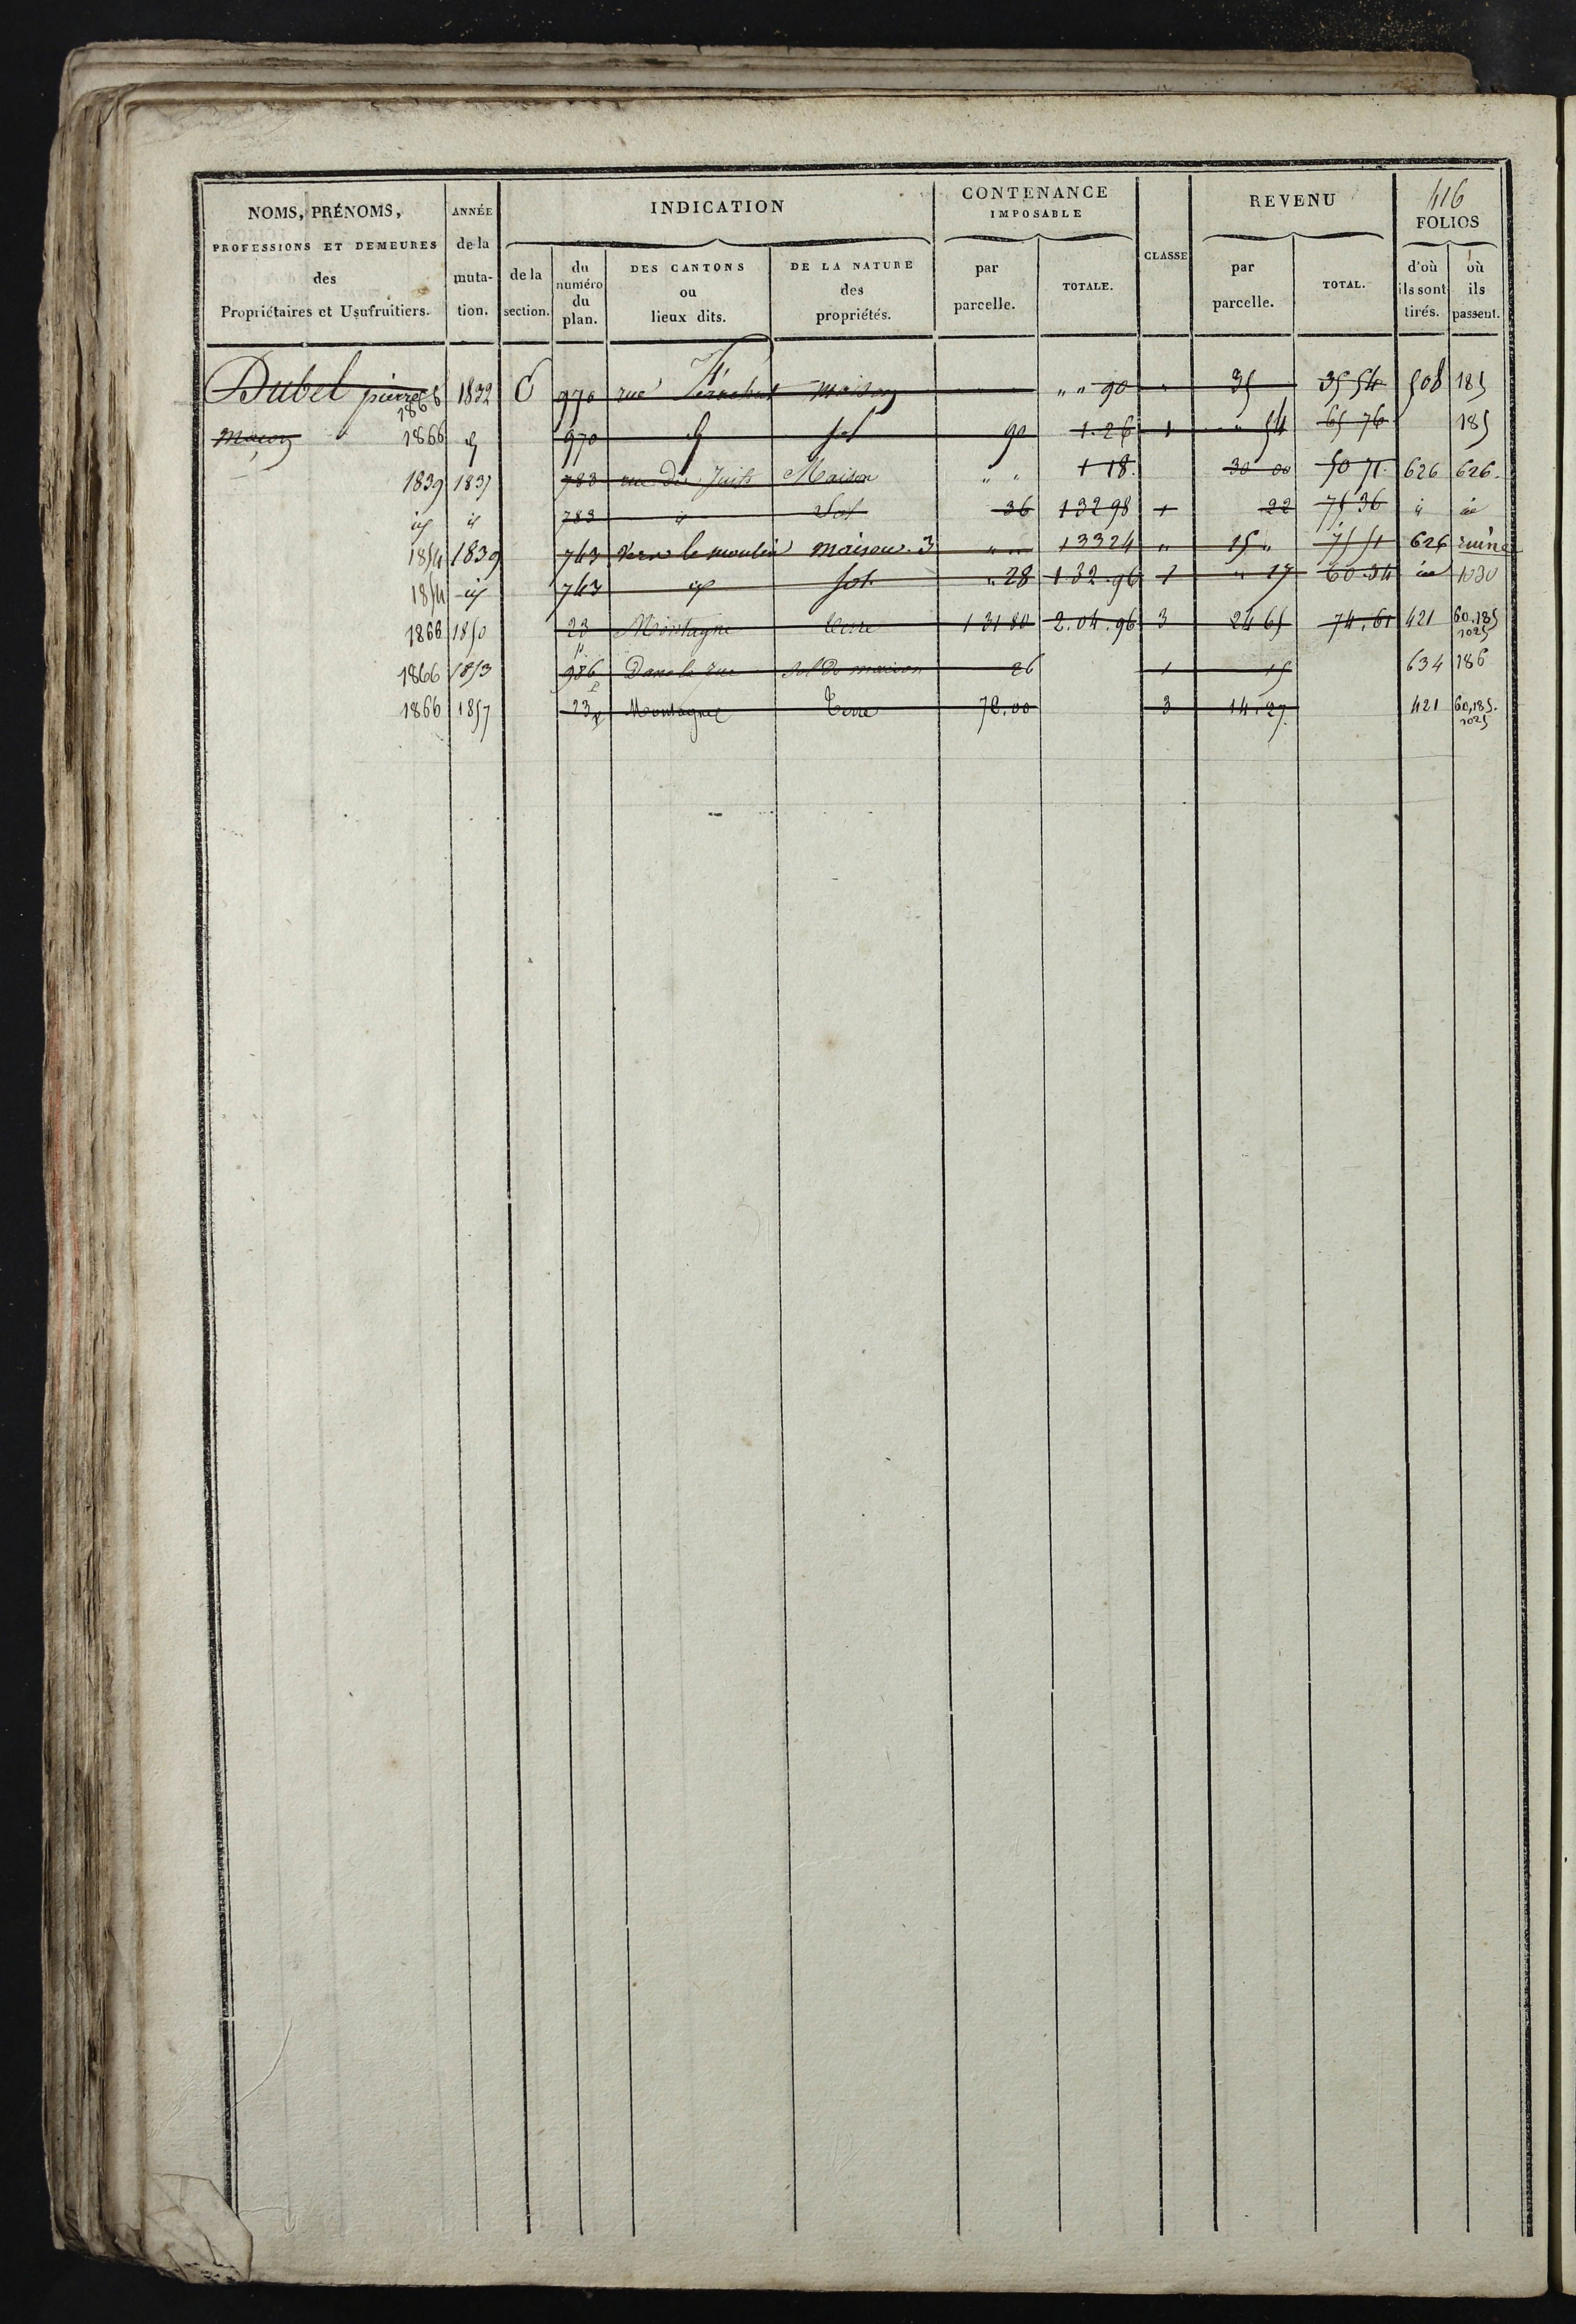 416
NOMS, PRÉNOMS, PROFESSIONS ET DEMEURES des Propriétaires et Usufruitiers.
ANNÉE de la muta-tion.
INDICATION
de la section.
du numéro du plan.
DES CANTONS ou lieux dits.
DE LA NATURE des propriétés.
CONTENANCE IMPOSABLE
par parcelle.
TOTALE.
CLASSE
REVENU
par parcelle.
TOTAL.
FOLIOS
d'où ils sont tirés.
où ils passent.
Dubel pierre 1866 1832 C 970 rue maison " " 90 " 35 35 54 508 185
maçon 1866 id 970 id sol 90 1.26 1 " 54 65 76 185
1839 1837 783 rue des Juifs Maison " " 1 18 30 00 50 71 626 626.
id id 783 id Sol 36 132 98 1 22 75 36 id id
1854 1839 763 vers le moulin maison. 3 " " 133 24 " 15 " 75 51 626 ruine
1854 id 763 id sol. " 28 1.32.96 1 " 17 60.34 id 1030
1866 1850 23 p Montagne terre 1 31 80 2.04.96 3 24 65 74.61 421 60.185 1025
1866 1853 986 p Dans la rue sol de maison 26 1 15 634 186
1866 1857 23 p Montagne Terre 78.00 3 14.27 421 60,185. 1025